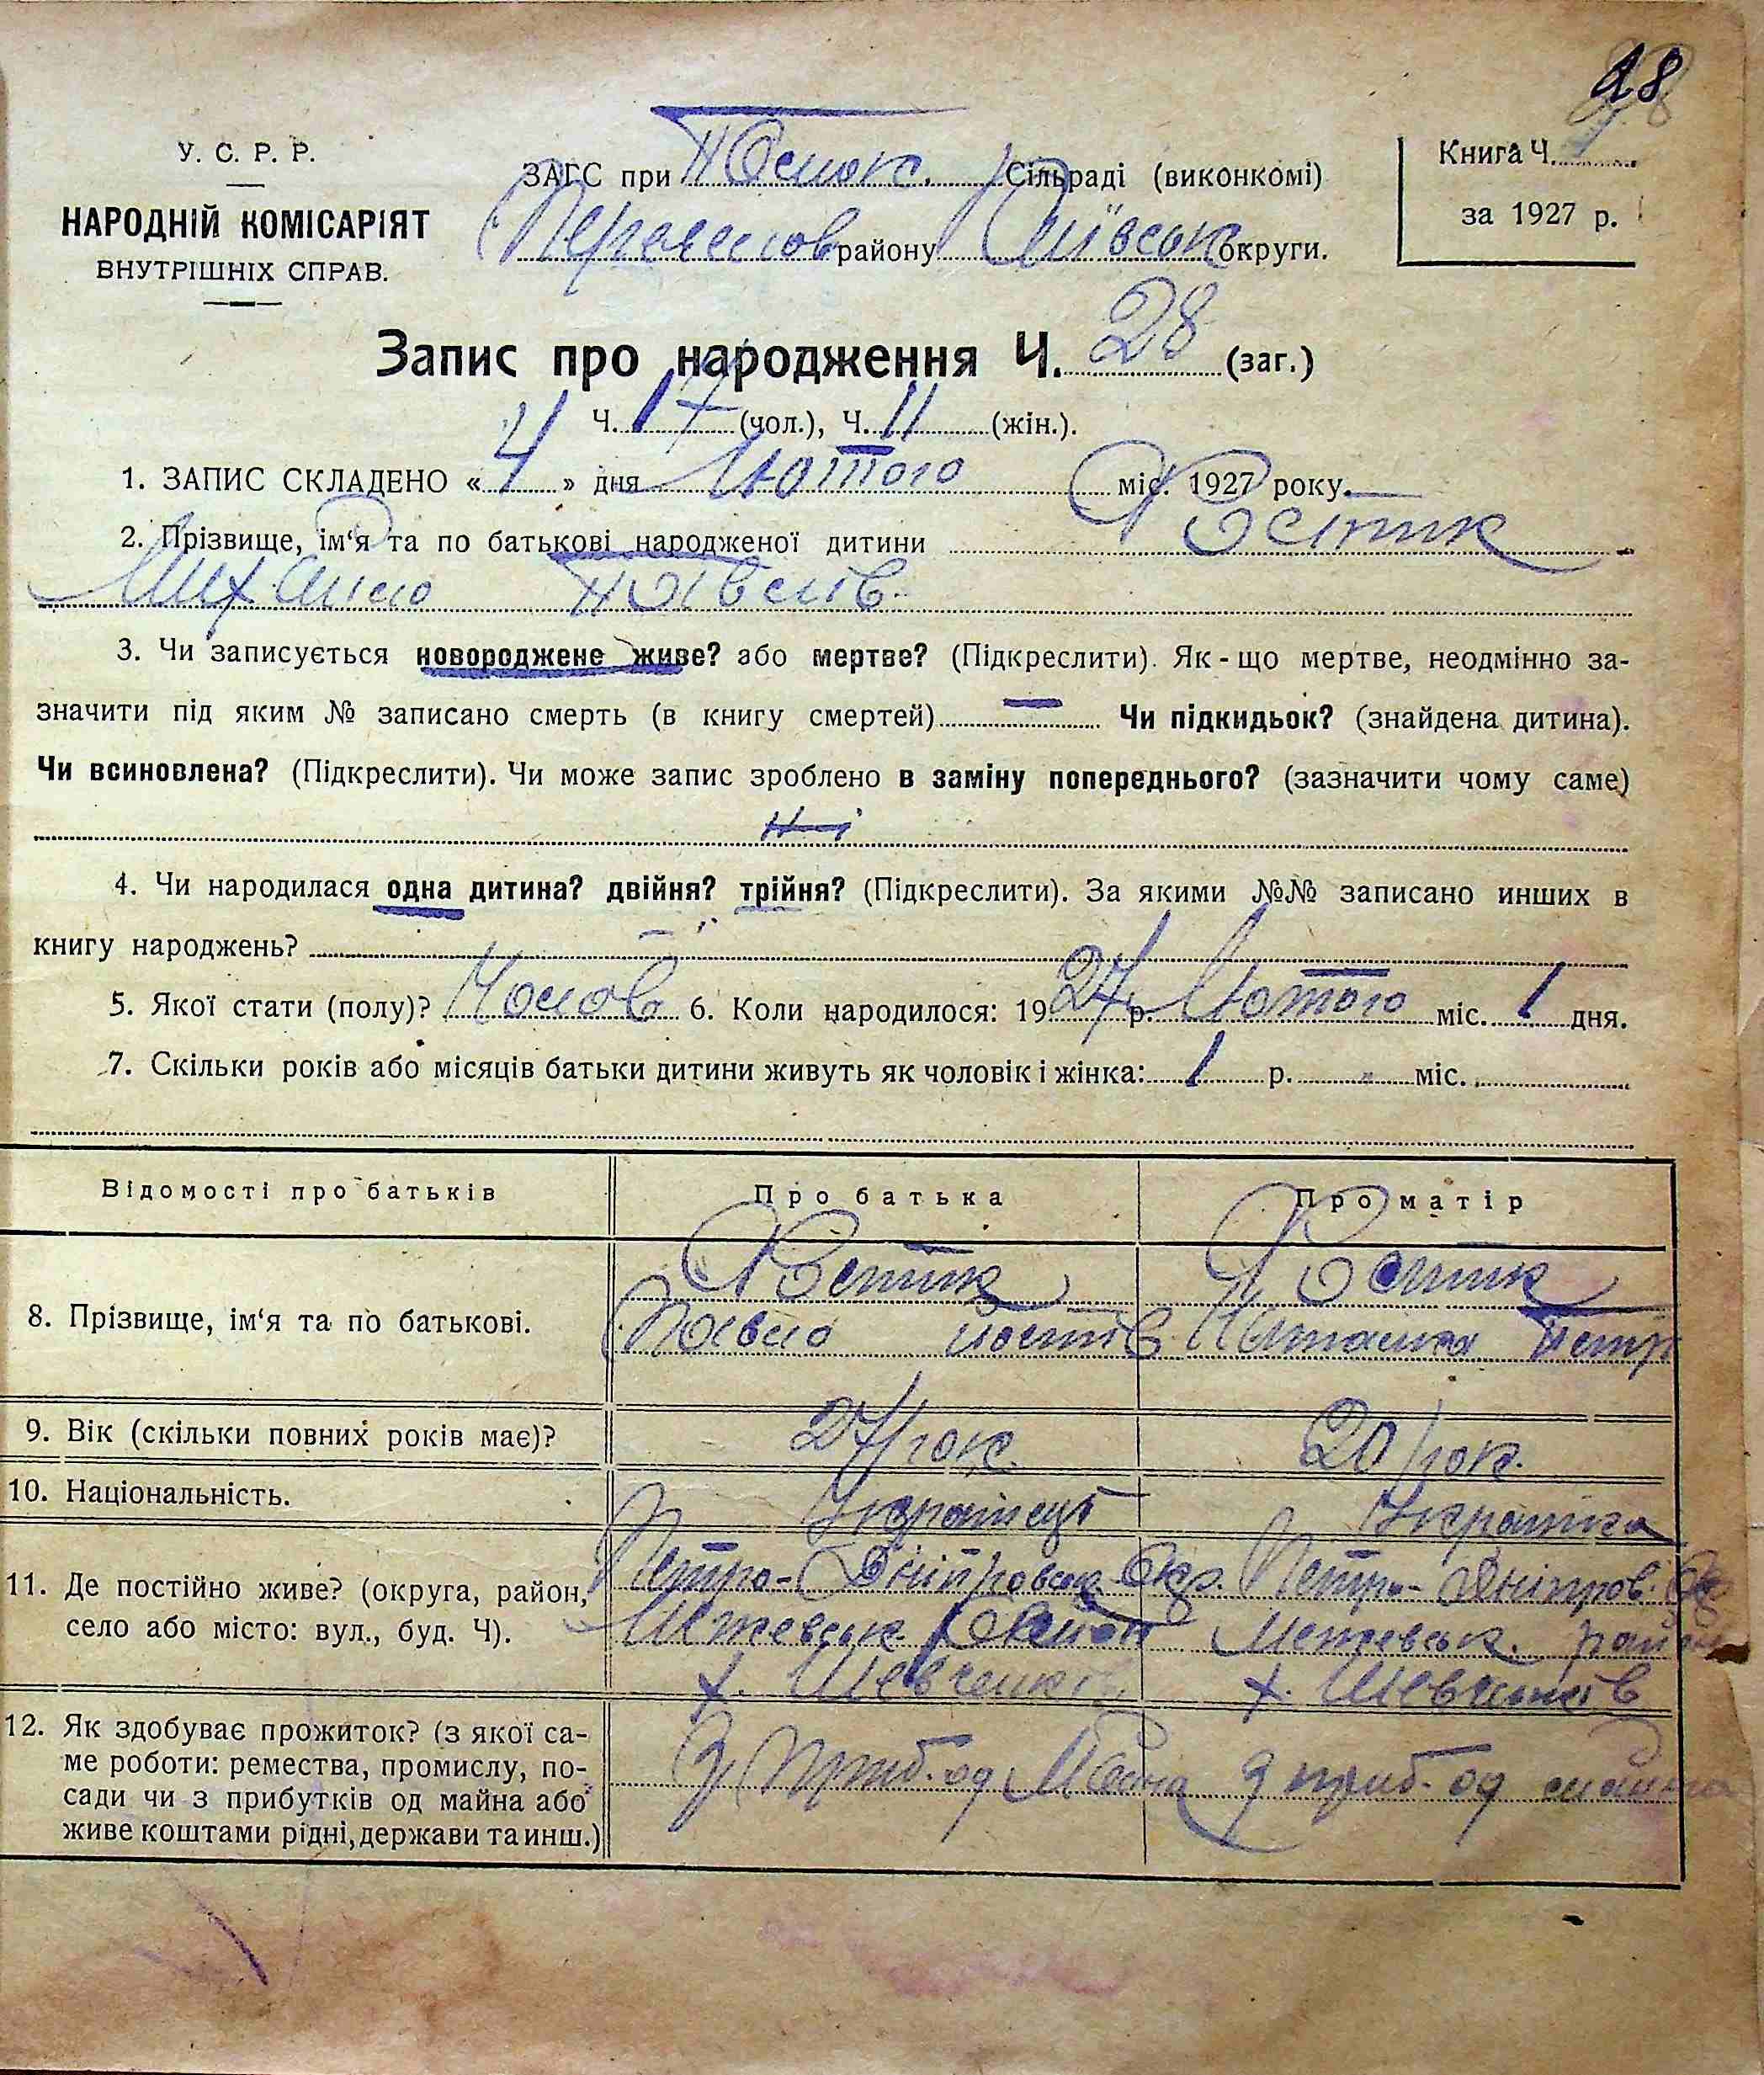 28
У. С. Р. Р.
НАРОДНІЙ КОМІСАРІЯТ
ВНУТРІШНІХ СПРАВ.
ЗАГС при Сільраді (виконкомі)
району округи.
Книга Ч.
за 1927 р.
Запис про народження Ч. 28 (заг.)
Ч. 17 (чол.), Ч. 11 (жін.).
1. ЗАПИС СКЛАДЕНО « 4 » дня Лютого міс. 1927 року.
2. Прізвище, ім‘я та по батькові народженої дитини Костик
Михайло Павлів.
3. Чи записується новороджене живе? або мертве? (Підкреслити). Як-що мертве, неодмінно за-
значити під яким № записано смерть (в книгу смертей) — Чи підкидьок? (знайдена дитина).
Чи всиновлена? (Підкреслити). Чи може запис зроблено в заміну попереднього? (зазначити чому саме)
Ні
4. Чи народилася одна дитина? двійня? трійня? (Підкреслити). За якими №№ записано инших в
книгу народжень?
5. Якої стати (полу)? Чолов 6. Коли народилося: 1927 р. Лютого міс. 1 дня.
7. Скільки років або місяців батьки дитини живуть як чоловік і жінка: 1 р. „ міс.
Відомості про батьків Про батька Про матір
8. Прізвище, ім‘я та по батькові.
Костик Костик
Павло Наталка Петр
9. Вік (скільки повних років має)? 27 рок. 20 рок.
10. Національність. Українець Українка
11. Де постійно живе? (округа, район,
село або місто: вул., буд. Ч).
Петро-Дніпровськ. Окр. Петро-Дніпров. Ок
Межевськ. Район Межевськ. район
х. Шевченків х. Шевченків
12. Як здобуває прожиток? (з якої са-
ме роботи: ремества, промислу, по-
сади чи з прибутків од майна або
живе коштами рідні, держави та инш.)
З приб. од Майна З приб. од майна